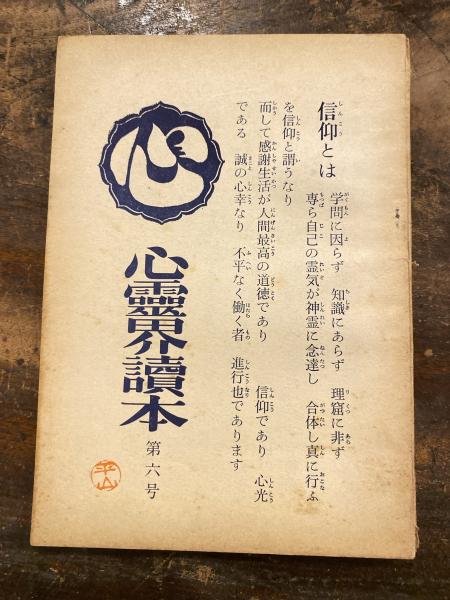 信仰とは
学問に因らず 知識にあらず 理窟に非ず
専ら自己の霊気が神霊に念達し 合体し真に行ふ
を信仰と謂うなり
而して感謝生活が人間最高の道徳であり 信仰であり 心光
である 誠の心幸なり 不平なく働く者 進行也であります
心
心靈界讀本
第六号